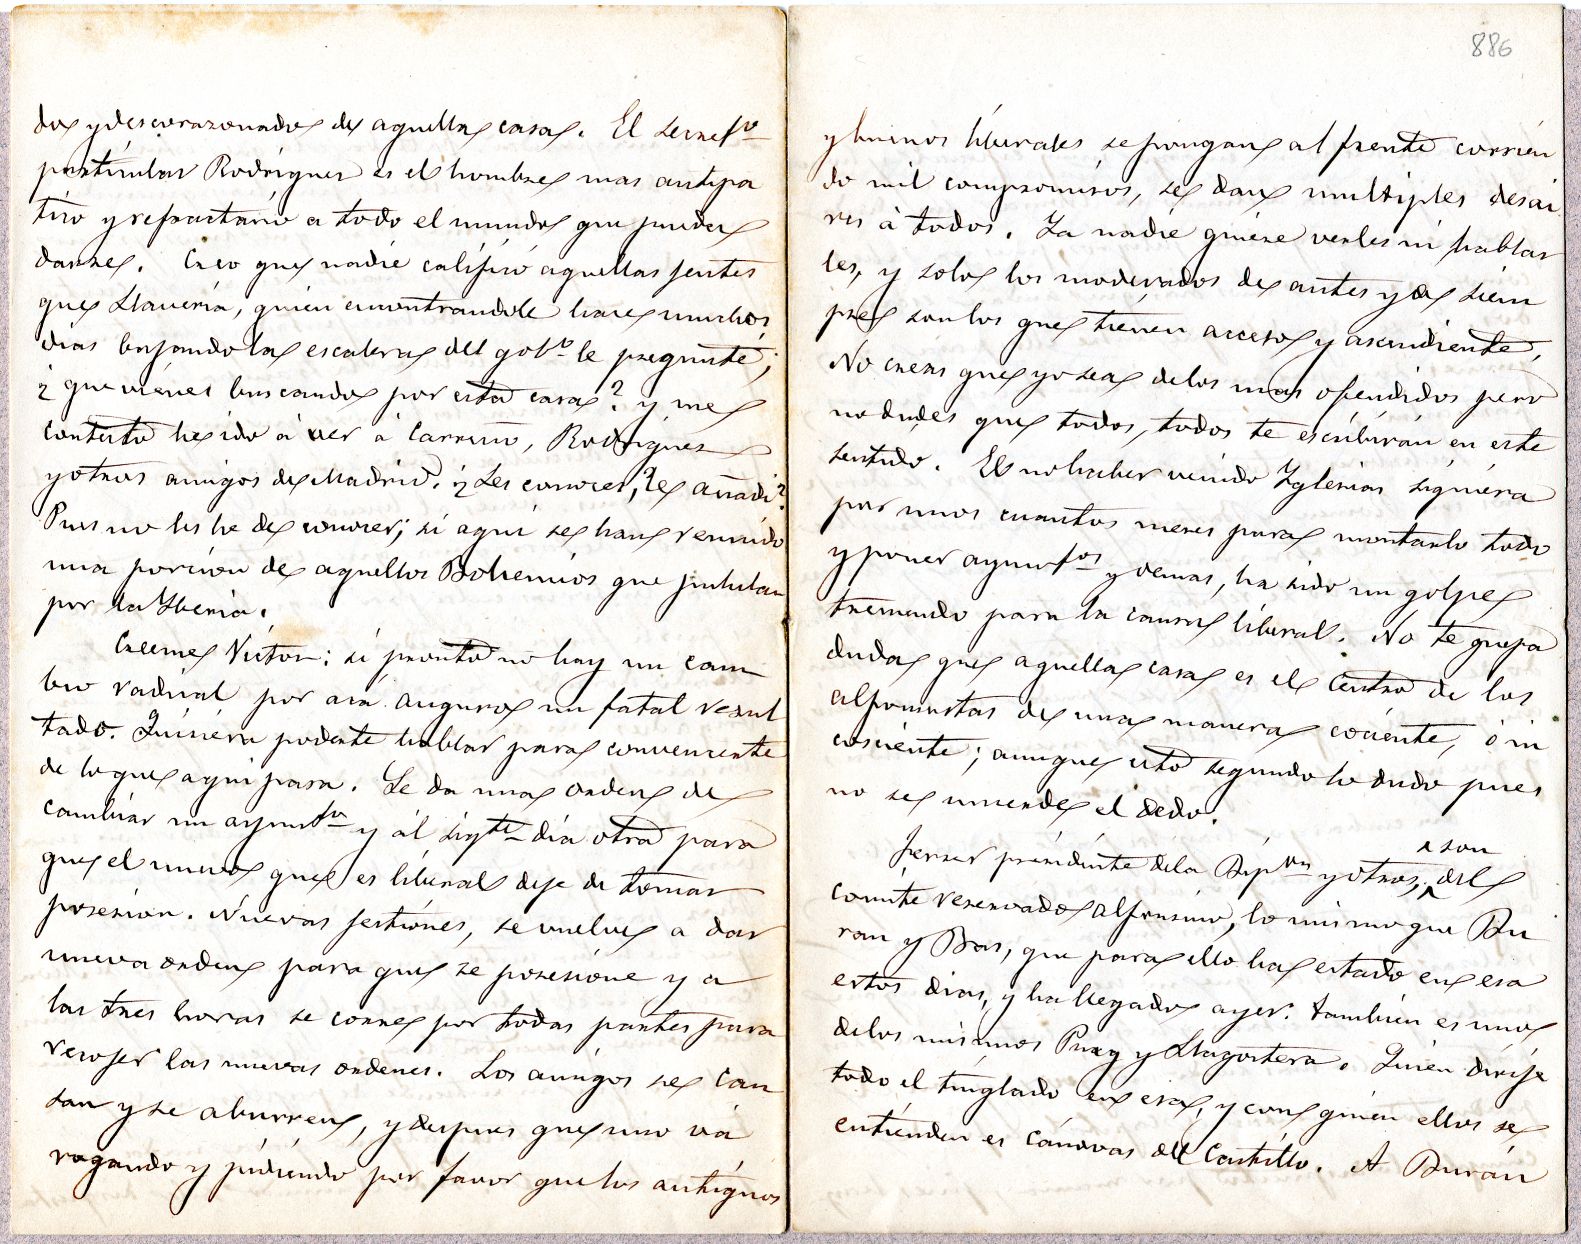 dos y descorazonados de aquella casa. El secret.o
particular Rodriguez es el hombre mas antipa
tico y refractario a todo el mundo que pueda
darse. Creo que nadie calificó aquellas jentes
que Llaveria, quien encontrandole hace muchos
dias bajando las escaleras del gob.o le pregunté;
¿que vienes buscando por esta casa? y me
contestó he ido á ver á Carreño, Rodriguez
y otros amigos de Madrid. ¿Les conoces, le añadi?
Pues no les he de conocer; si aqui se han reunido
una porcion de aquellos Bohemios que pululan
por la Yberia.
Creeme Victor: si pronto no hay un cam
bio radical por acá auguro un fatal resul
tado. Quisiera poderte hablar para convencerte
de lo que aqui pasa. Se da una orden de
cambiar un ayunt.o y al sig.te dia otra para
que el nuevo que es liberal deje de tomar
posesion. Nuevas jestiones, se vuelve a dar
nueva orden para que se posesione y a
las tres horas se corre por todas partes para
recojer las nuevas ordenes. Los amigos se can
san y se aburren, y despues que uno vá
rogando y pidiendo por favor que los antiguos
886
y buenos liberales se pongan al frente corrien
do mil compromisos, se dan multiples desai
res á todos. Ya nadie quiere verles ni hablar
les, y solo los moderados de antes y de siem
pre son los que tienen acceso y ascendiente.
No creas que yo sea de los mas ofendidos pero
no dudes que todos, todos te escribirán en este
sentido. El no haber venido Yglesias siquiera
por unos cuantos meses para montarlo todo
y poner ayunt.os y demas, ha sido un golpe
tremendo para la causa liberal. No te quepa
duda que aquella casa es el centro de los
alfonsistas de una manera cociente, ó in
cosciente; aunque esto segundo lo dudo pues
no se muerde el dedo.
Ferrer presidente de la Dip.on y otros, son del
comité reservado alfonsino, lo mismo que Du
ran y Bas, que para ello ha estado en esa
estos dias, y ha llegado ayer. Tambien es uno
de los mismos Puig y Llagostera. Quien dirije
todo el tinglado en esa, y con quien ellos se
entienden es Cánovas del Castillo. A Durán